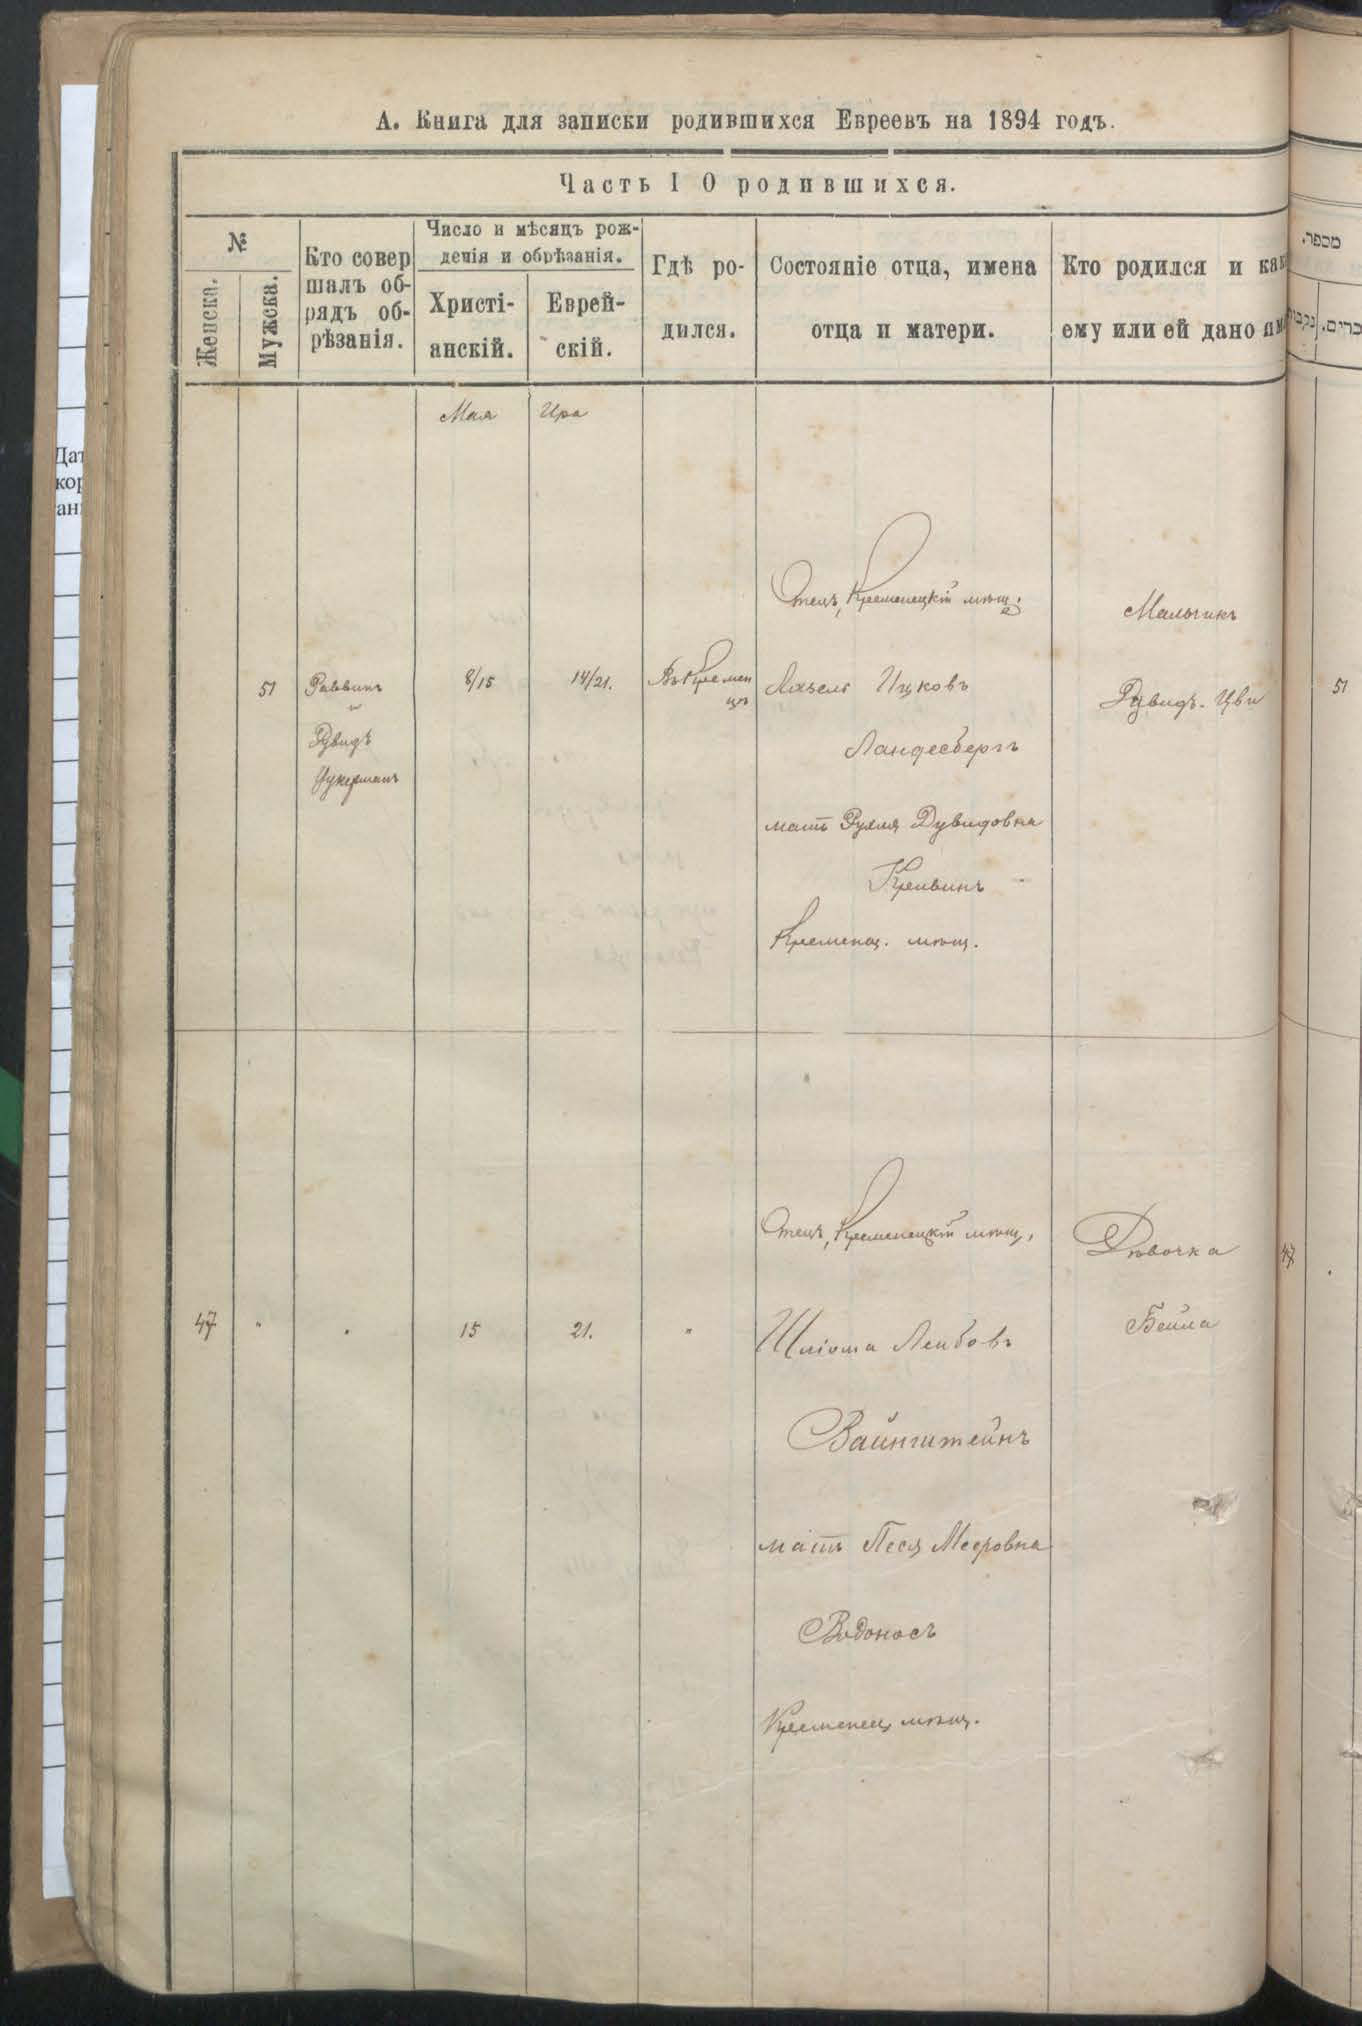 А. Книга для записки родившихся Евреевъ на 1894 годъ.
Часть I О родившихся.
№
Женска.
Мужска.
Кто совер
шалъ об-
рядъ об-
рѣзанія.
Число и мѣсяцъ рож-
денія и обрѣзанія.
Христі-
анскій.
Еврей-
скій.
Гдѣ ро-
дился.
Состояніе отца, имена
отца и матери.
Кто родился и как
ему или ей дано им
מספר.
נקבות
זכרים.
Дат
кор
ан
Мая
Ира
51
Раввинъ
и
Дувидъ
Цукерманъ
8/15
14/21.
Въ Кремен
цѣ
Отецъ, Кременецкій мѣщ.
Ицковъ
Ландесбергъ
мать Рухля Дувидовна
Крейвинъ
Кременец. мѣщ.
Мальчикъ
Дувидъ-Цви
51
47
"
"
15
21.
"
Отецъ, Кременецкій мѣщ.
Шліома Лейбовъ
Вайнштейнъ
мать Песя Мееровна
Водоносъ
Кременец. мѣщ.
Дѣвочка
Бейла
47